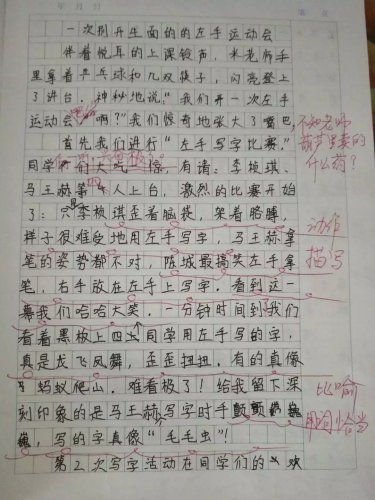 一次别开生面的的左手运动会
伴着悦耳的上课铃声，米老师手
里拿着乒乓球和几双筷子，闪亮登上
了讲台，神秘地说："我们开一次左手
运动会。""啊？"我们惊奇地张大了嘴巴，
不知老师
葫芦里卖的
什么药？
首先我们进行"左手写字比赛。"
同学们大吃一惊，有请：李桢琪、
马王赫等四人上台，激烈的比赛开始
了：只见李桢琪歪着脑袋，架着胳膊，
样子很难受地用左手写字，马王赫拿
动作
描写
笔的姿势都不对，陈城最搞笑左手拿
笔，右手放在左手上写字。看到这一
幕我们哈哈大笑。一分钟时间到我们
看着黑板上四位同学用左手写的字，
真是龙飞凤舞，歪歪扭扭，有的真像
蚂蚁爬山，难看极了！给我留下深
刻印象的是马王赫写字时手颤颤巍
巍，写的字真像"毛毛虫"！
比喻
用词恰当
第2次写字活动在同学们的"欢